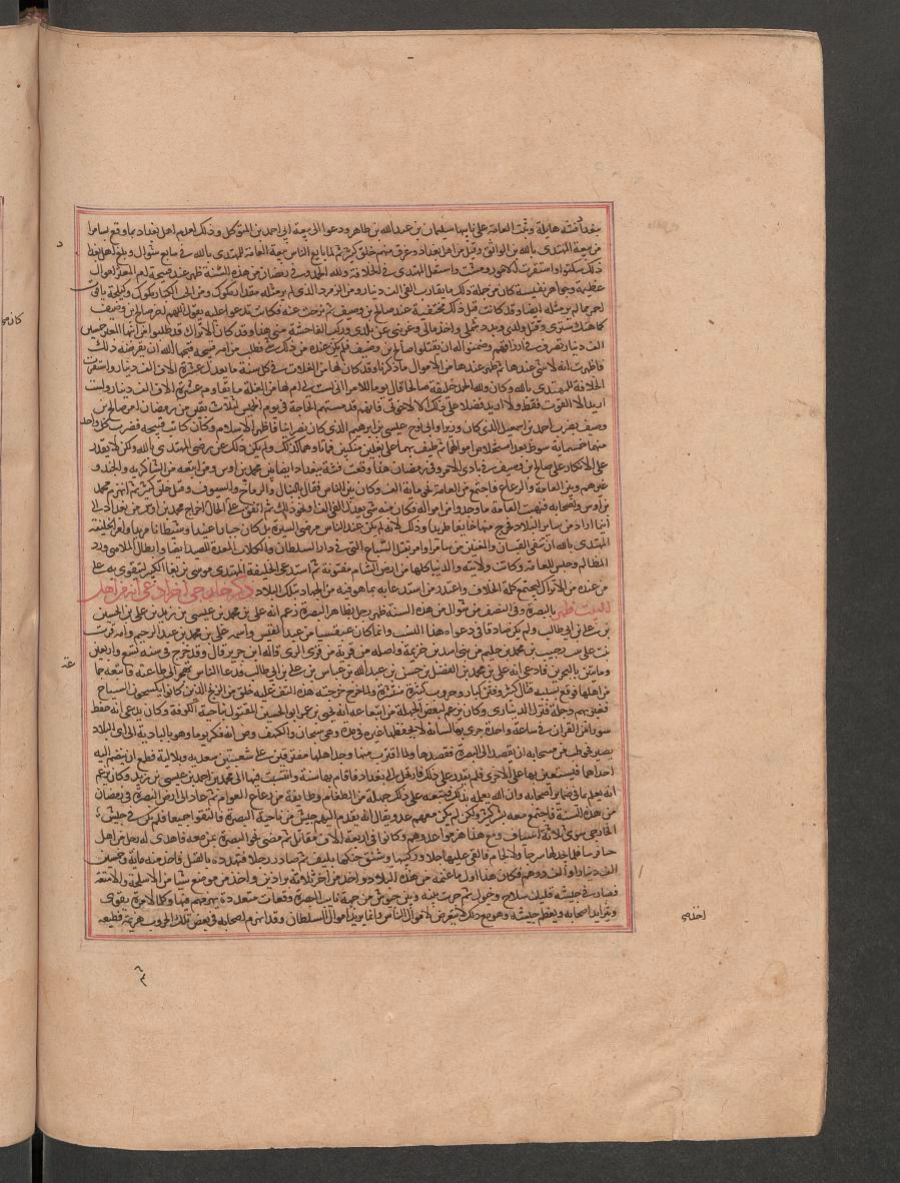 ببغداد فتنة هائلة وثبت العامة على نايبها سليمان بن عبد الله بن طاهر ودعوا الى بيعة ابي احمد بن المتوكل وذلك لعدم علم اهل بغداد بما وقع بسامرا
من بيعة المهتدى بالله بن الواثق وقتل من اهل بغداد وغرق منهم خلق كثير ثم لما بايع الناس بيعة العامة للمهتدى بالله في سابع شوال وبلغ اهل بغداد
ذلك سكنوا واستقرت الامور ومشت واستقل المهتدى في الخلافة ولله الحمد وفي رمضان من هذه السنة ظهر عند قبيحة ام المعتز اموال
عظيمة وجواهر نفيسة كان من جملة ذلك ما يقارب الفي الف دينار ومن الزمرد الذي لم ير مثله مقدار مكوك ومن الحب الكبار مكوك وكيلجة ياقوت
احمر مما لم ير مثله ايضا وقد كانت قبل ذلك مختفية عند صالح بن وصيف ثم نزحت عنه فكانت تدعوا عليه تقول اللهم اخز صالح بن وصيف
كما هتك سترى وقتل ولدى وبدد شملي واخذ مالي وغربني عن بلدي وركب الفاحشة مني هذا وقد كان الاتراك قد طلبوا من ابنها المعتز خمسين
الف دينار تصرف في ارزاقهم وضمنوا له ان يقتلوا صالح بن وصيف فلم يكن عنده من ذلك شي فطلب من امه قبيحة قبحها الله ان تقرضه ذلك
فاظهرت انه لا شي عندها ثم ظهر عندها من الاموال ما ذكرنا وقد كان لها من الغلات في كل سنة ما يعدل عشرة الاف الف دينار واستقرت
الخلافة للمهتدى بالله وكان ولله الحمد خليفة صالحا قال يوما للامرا اني لست لي ام لها من الغلة ما يقاوم عشرة الاف الف دينار ولست
اريد الا القوت فقط ولا اريد فضلا على ذلك الا لاخوتي فانهم قد مستهم الحاجة وفي يوم الخميس لثلاث بقين من رمضان امر صالح بن
وصيف بضرب احمد بن اسرائيل الذي كان وزيرا وابي نوح عيسى بن ابراهيم الذي كان نصرانيا فاظهر الاسلام وكان كاتب قبيحة فضرب كل واحد
منهما خمسمائة سوط بعد استخلاص اموالهما ثم طيف بهما على بغلين منكسين فماتا وهما كذلك ولم يكن ذلك عن رضى المهتدى بالله ولكن لا يقدر
على الانكار على صالح بن وصيف في بادى الامر وفي رمضان هذا وقعت فتنة ببغداد ايضا بين محمد بن اوس ومن اتبعه من الشاكرية والجند و
غيرهم وبين العامة والرعاع فاجتمع من العامة نحو مائة الف وكان بين الناس قتال بالنبال والرماح والسيوف وقتل خلق كثير ثم انهزم محمد
بن اوس واصحابه فنهبت العامة ما وجدوا من امواله فكان منه شي يعدل الفي الف او نحو ذلك ثم اتفق على الحال اخراج محمد بن اوس من بغداد الى
اينما اراد من ساير البلاد فخرج منها خايفا طريدا وذلك لانه لم يكن عند الناس مرضى السيرة بل كان جبارا عنيدا وشيطانا مريدا وامر الخليفة
المهتدى بالله ان تنفى القيان والمغنين من سامرا وامر بقتل السباع التي في دار السلطان والكلاب المعدة للصيد ايضا وابطال الملاهي ورد
المظالم وجلس للعامة وكانت ولايته والدنيا كلها من ارض الشام مفتونة ثم استدعى الخليفة المهتدى موسى بن بغا الكبير ليتقوى به على
من عنده من الاتراك لتجتمع كلمة الخلافة واعتذر من استدعائه بما هو فيه من الجهاد بتلك البلاد ذكر خارجي اخر ادعى انه من اهل
البيت ظهر بالبصرة وفي النصف من شوال من هذه السنة ظهر رجل بظاهر البصرة زعم انه علي بن محمد بن عيسى بن زيد بن علي بن الحسين
بن علي بن ابي طالب ولم يكن صادقا في دعواه هذا النسب وانما كان عسيفا من عبد القيس واسمه علي بن محمد بن عبد الرحيم وامه قرت
بنت علي بن رحيب بن محمد بن حكيم من بني اسد بن خزيمة واصله من قرية من قرى الرى قاله ابن جرير قال وقد خرج في سنة تسع واربعين
وماتين بالبحرين فادعى انه علي بن محمد بن الفضل بن حسن بن عبد الله بن عباس بن علي بن ابي طالب فدعا الناس بهجر الى طاعته فاتبعه جما
من اهلها فوقع بسببه قتال كثير وفتن كبار وحروب كثيرة منتشرة ولما خرج خرجته هذه التف عليه خلق من الزنج الذين كانوا يكسحون السباخ
فعبر بهم دجلة فنزل الديناري وكان يزعم لبعض الجهلة من اتباعه انه يحيى بن عمر ابو الحسين المقتول بناحية الكوفة وكان يدعى انه حفظ
سورا من القران في ساعة واحدة جرى بها لسانه لا يحفظها غيره في مدة وهي سبحان والكهف وص انه فكر يوما وهو بالبادية الى اي البلاد
يصير فخوطب من سحابة ان يقصد الى البصرة فقصدها ولما اقترب منها وجد اهلها مفترقين على شعبتين سعدية وبلالية فطمع ان ينضم اليه
احداهما فيستعين بها على الاخرى فلم يقدر على ذلك فارتحل الى بغداد فاقام بها سنة وانتسب فيها الى محمد بن احمد بن عيسى بن زيد وكان يزعم
انه يعلم ما في ضماير اصحابه وان الله يعلمه بذلك فتبعه على ذلك جملة من الطغام وطائفة من رعاع العوام ثم عاد الى ارض البصرة في رمضان
من هذه السنة فاجتمع معه بشر كثير ولكن لم يكن معهم عدد يقاتلون به فقدم اليهم جيش من ناحية البصرة فالتقوا جميعا فلم يكن في جيش
الخارجي سوى ثلاثة اسياف ومع هذا هزموا عدوهم وكانوا في اربعة الاف مقاتل ثم مضى نحو البصرة بمن معه فاهدى له رجل من اهل
جبى فرسا فلم يجد لها سرجا ولا لجاما فالقى عليها حبلا وركبها وشنق حنكها بليف ثم صادر رجلا فتهدده بالقتل فاخذ منه مائة وخمسين
الف دينار او الف درهم فكان هذا اول ما غنمه من هذه البلاد واخذ من اخر ثلاثة براذين واخذ من موضع شيا من الاسلحة والامتعة
فصار في جيشه قليل سلاح وخيول ثم جرت بينه وبين جيوش من جهة نايب البصرة وقعات متعددة يهزمهم فيها وكلما لامره يقوى
وتتزايد اصحابه ويعظم جيشه وهو مع ذلك لا يتعرض لاموال الناس وانما يريد اموال السلطان وقد انهزم اصحابه في بعض تلك الحروب هزيمة فظيعة